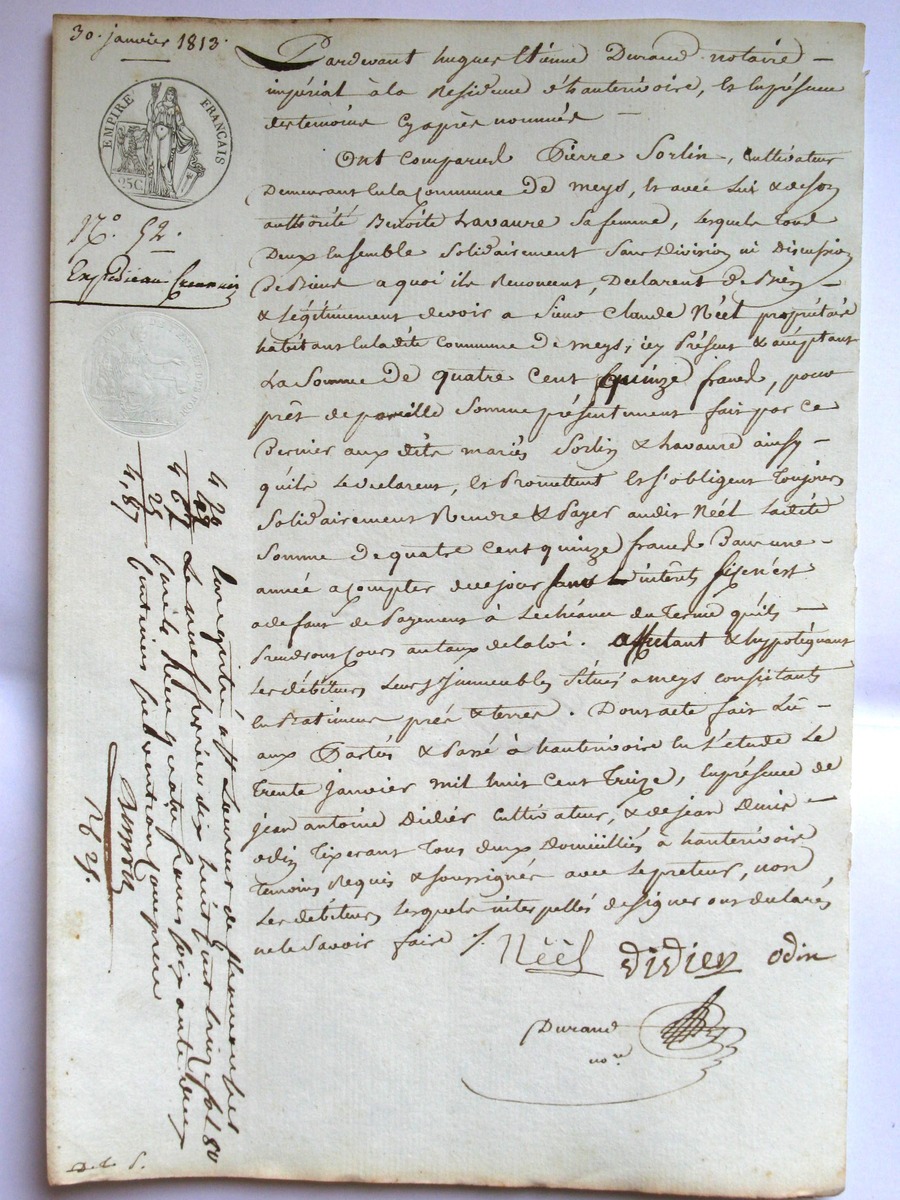 30. janvier 1813.
EMPIRE FRANÇAIS
25C
N.º 52.
Expédié au Creancier
Pardevant hugues Etienne Durand notaire —
impérial à la Residence d'hauterivoire, Et En présence
des temoins Cy après nommés —
Ont Comparus Pierre Sorlin, Cultivateur
Demeurant En la Commune De meys, Et avec Lui & de Son
authorité Benoite Lavaure Sa femme, Lesquels Tous
Deux Ensemble Solidairement Sans Division ni Discussion
De Biens a quoi ils Renoncent, Declarent De Bien —
& Légitimement devoir a Sieur Claude Néel propriétaire
habitant En la dite Commune De meys, icy Présent & acceptant
La Somme De quatre Cent quinze francs, pour
prêt de pareille Somme présentement fait par Ce
Dernier aux dits mariés Sorlin & Lavaure ainsy —
qu'ils Le declarent, Et Promettent Et S'obligent Toujours
Solidairement Rendre & Payer audit Néel Ladite
Somme De quatre Cent quinze francs Dans une —
année a Compter de ce jour Sans D'intérêts Si Ce n'est
a defaut de Payement à L'échéance du Terme qu'ils —
Prendront Cours au taux de la loi. affectant & hypotéquant
Les débiteurs Leurs Immeubles Situés a meys Consistants
En Batimens prés & terres. Dont acte fait Lû —
aux Parties & Passé à hauterivoire En L'étude Le
Trente Janvier mil huit Cent Treize, En présence de
Jean antoine Didier Cultivateur, & de Jean Denis —
odin Tixerant Tous deux Domiciliés a hauterivoire
Temoins Requis & soussignés avec Le preteur, non
Les débiteurs Lesquels interpellés de signer ont declarés
ne le Savoir faire ./.
Néel didier odin
Durand
no.re
Enregistré à St Laurent de Chamousset
Le onze février dix huit cent treize fol 80
quatre francs soixante deux
centimes subvention comprise
4 20
4 62
25
4,87